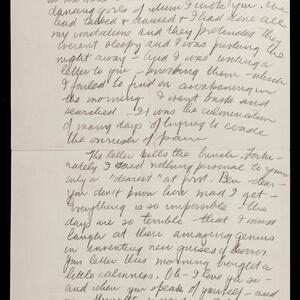 dancing girls of whom I wrote you. We
had talked & danced & I had done all
my imitations and they pretended they
weren't sleepy and I was pushing the
night away – And I was writing a
letter to you – provoking them – which
I failed to find on awakening in
the morning. I went back and
searched – It was the culmination
of many days of trying to evade
the onrush of pain
The letter tells the bunch. Fortu-
nately I said nothing personal to you
only a "dearest" at first. Ben – dear –
You don't know how mad I get –
Everything is so impossible – the
days are so terrible that I must
laugh at their amazing genius
in inventing new guises of horror
Your letter this morning brought a
little calmness. Oh – I love you so –
and when you speak of yourself – and